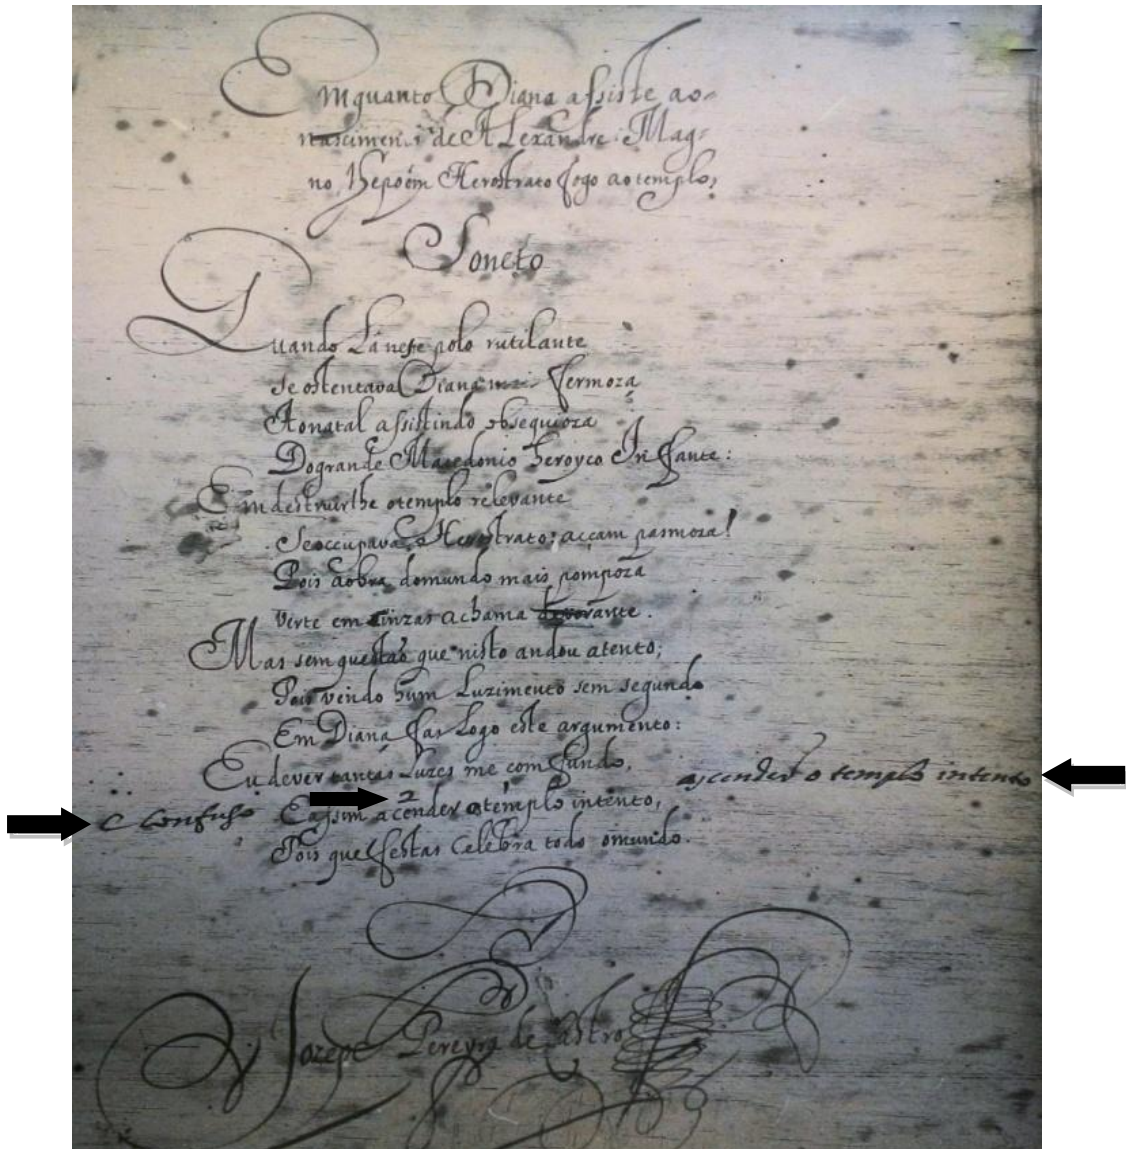 Emquanto Diana assiste ao
nascimen de Alexandre Mag-
no, Herostrato fogo aotemplo,
Soneto
Quando polo rutilante
Se ostentava Diana fermoza
Aonatal assistindo obsequioza
Dogrande Macedonio heroyco Infante:
Em destruirlhe otemplo relevante
Seoccupava Herostrato; acçam pasmoza!
Pois aobra domundo mais pompoza
Verte em sinzas achama devorante.
Mas sem questão que nisto andou atento;
Pois vendo hum Luzimento sem segundo
Em Diana fas Logo este argumento:
Eu dever tantas Luzes me comfundo,
ascender o templo intento
e confuso
2
Eassim acender otemplo intento,
Pois que festas Celebra todo omundo.
Jozepe Pereyra de Castro